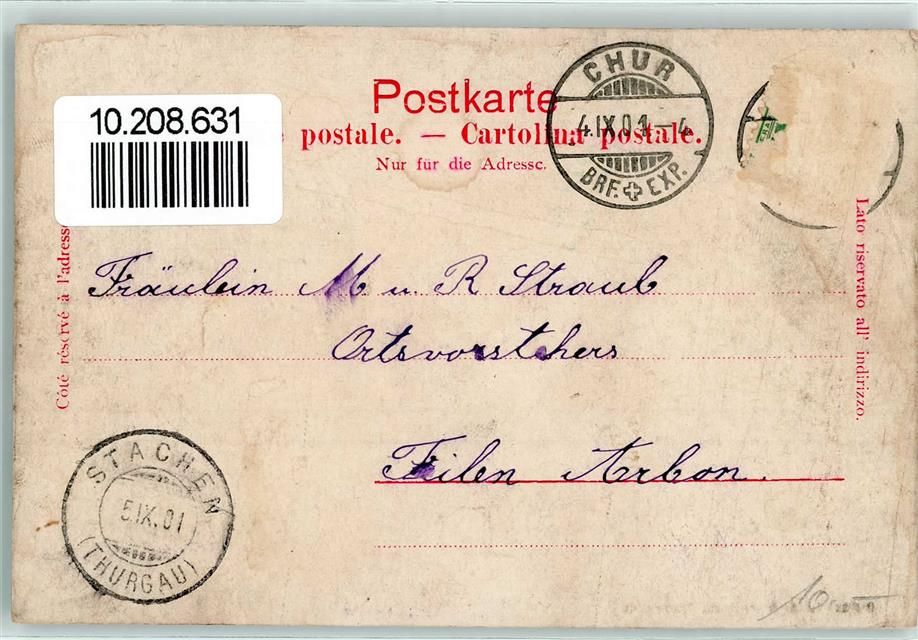 10.208.631
Postkarte
postale. — Cartolina postale.
Nur für die Adresse.
CHUR
4.IX.01–4
BRF. EXP.
Côté réservé à l'adresse
Lato riservato all' indirizzo.
Fräulein M u. R Straub
Ortsvorstehers
Feilen Arbon.
STACHEN
5.IX.01
(THURGAU)